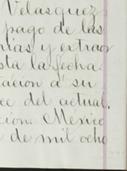 Velasquez
pago de las
mas y extraor
sta la fecha.
tacion á su
ce del actual.
cion. México
de mil ocho